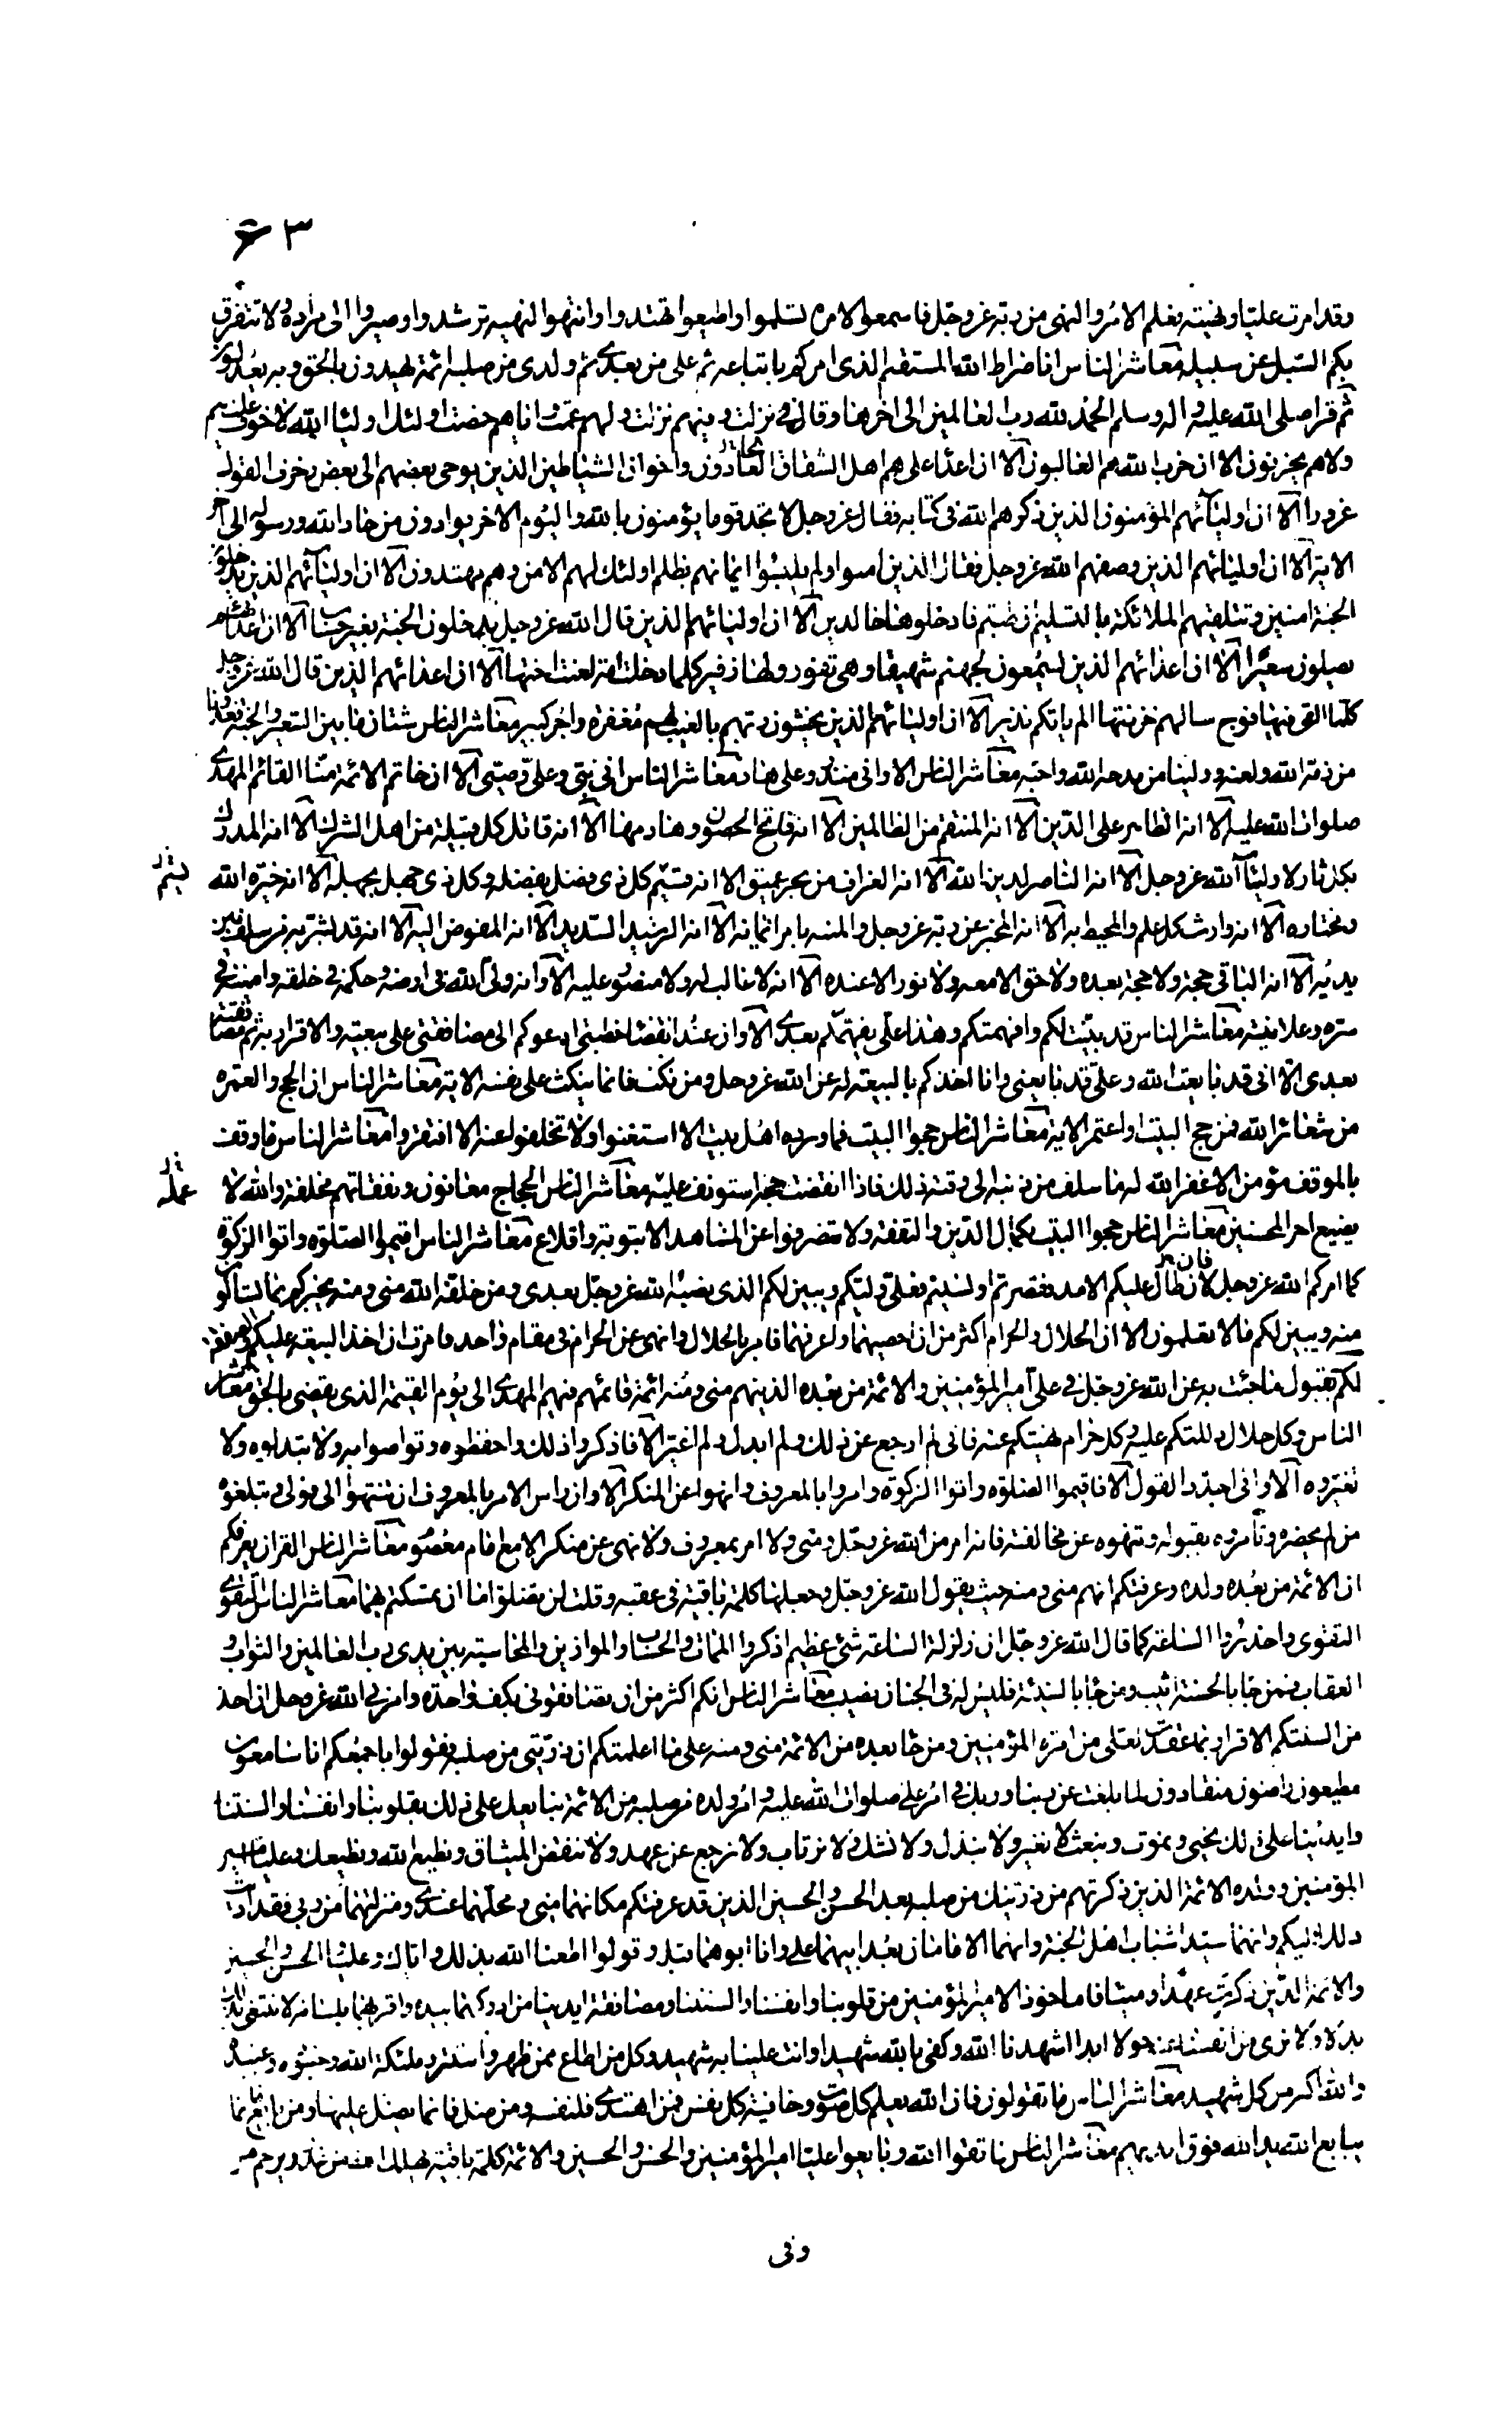 وقد امرت عليا ونهيته فعلم الامر والنهى من ربه عز وجل فاسمعوا لامره تسلموا واطيعوا تهتدوا وانتهوا لنهيه ترشدوا وصيروا الى مراده ولا تتفرق
بكم السبل عن سبيله معاشر الناس انا صراط الله المستقيم الذى امركم باتباعه ثم على من بعدى ثم ولدى من صلبه ائمة يهدون بالحق وبه يعدلون
ثم قرا صلى الله عليه واله وسلم الحمد لله رب العالمين الى اخرها وقال فى نزلت وفيهم نزلت ولهم عمت واياهم خصت اولئك اولياء الله لا خوف عليهم
ولاهم يحزنون الا ان حزب الله هم الغالبون الا ان اعداء على هم اهل الشقاق العادون واخوان الشياطين الذين يوحى بعضهم الى بعض زخرف القول
غرورا الا ان اوليائهم المؤمنون الذين ذكرهم الله فى كتابه فقال عز وجل لا تجد قوما يؤمنون بالله واليوم الاخر يوادون من حاد الله ورسوله الى اخر
الاية الا ان اوليائهم الذين وصفهم الله عز وجل فقال الذين امنوا ولم يلبسوا ايمانهم بظلم اولئك لهم الامن وهم مهتدون الا ان اوليائهم الذين يدخلون
الجنة امنين وتتلقيهم الملائكة بالتسليم ان طبتم فادخلوها خالدين الا ان اوليائهم الذين قال الله عز وجل يدخلون الجنة بغير حساب الا ان اعدائهم
يصلون سعيرا الا ان اعدائهم الذين يسمعون لجهنم شهيقا وهى تفور ولها زفير كلما دخلت امة لعنت اختها الا ان اعدائهم الذين قال الله عز وجل
كلما القى فيها فوج سالهم خزنتها الم ياتكم نذير الا ان اوليائهم الذين يخشون ربهم بالغيب لهم مغفرة واجر كبير معاشر الناس شتان ما بين السعير والجنة عدونا
من ذمه الله ولعنه وولينا من مدحه الله واحبه معاشر الناس الا وانى منذر وعلى هاد معاشر الناس انى نبى وعلى وصيى الا ان خاتم الائمة منا القائم المهدى
صلوات الله عليه الا انه الظاهر على الدين الا انه المنتقم من الظالمين الا انه فاتح الحصون وهادمها الا انه قاتل كل قبيلة من اهل الشرك الا انه المدرك
بكل ثار لاولياء الله عز وجل الا انه الناصر لدين الله الا انه الغراف من بحر عميق الا انه قسيم كل ذى فضل بفضله وكل ذى جهل بجهله الا انه خيرة الله
ومختاره الا انه وارث كل علم والمحيط به الا انه المخبر عن ربه عز وجل والمنبه بامر ايمانه الا انه الرشيد السديد الا انه المفوض اليه الا انه قد بشر به من سلف بين
يديه الا انه الباقى حجة ولا حجة بعده ولا حق الا معه ولا نور الا عنده الا انه لا غالب له ولا منصور عليه الا وانه ولى الله فى ارضه وحكمه فى خلقه وامينه فى
سره وعلانيته معاشر الناس قد بينت لكم وافهمتكم وهذا على يفهمكم بعدى الا وان عند انقضاء خطبتى ادعوكم الى مصافقتى على بيعته والاقرار به ثم مصافقته
بعدى الا انى قد بايعت الله وعلى قد بايعنى وانا اخذكم بالبيعة له عن الله عز وجل ومن نكث فانما ينكث على نفسه الاية معاشر الناس ان الحج والعمرة
من شعائر الله فمن حج البيت او اعتمر الاية معاشر الناس حجوا البيت فما ورده اهل بيت الا استغنوا ولا تخلفوا عنه الا افتقروا معاشر الناس ما وقف
بالموقف مؤمن الا غفر الله له ما سلف من ذنبه الى وقته ذلك فاذا انقضت حجته استونف عليه معاشر الناس الحجاج معانون ونفقاتهم مخلفة والله لا
يضيع اجر المحسنين معاشر الناس حجوا البيت بكمال الدين والتفقه ولا تنصرفوا عن المشاهد الا بتوبة واقلاع معاشر الناس اقيموا الصلوة واتوا الزكوة
كما امركم الله عز وجل لان طال عليكم الامد فقصرتم او نسيتم فعلى وليكم ويبين لكم الذى نصبه الله عز وجل بعدى ومن خلقه الله منى ومنه يخبركم بما تسألون
منه ويبين لكم ما لا تعلمون الا ان الحلال والحرام اكثر من ان احصيهما واعرفهما فامر بالحلال وانهى عن الحرام فى مقام واحد فامرت ان اخذ البيعة عليكم والصفقة
لكم بقبول ما جئت به عن الله عز وجل فى على امير المؤمنين والائمة من بعده الذينهم منى ومنه ائمة قائمهم فيهم المهدى الى يوم القيمة الذى يقضى بالحق معاشر
الناس وكل حلال دللتكم عليه وكل حرام نهيتكم عنه فانى لم ارجع عن ذلك ولم ابدل ولم اغير الا فاذكروا ذلك واحفظوه وتواصوا به ولا تبدلوه ولا
تغيروه الا وانى اجدد القول الا فاقيموا الصلوة واتوا الزكوة وامروا بالمعروف وانهوا عن المنكر الا وان راس الامر بالمعروف ان تنتهوا الى قولى وتبلغوه
من لم يحضره وتأمروه بقبوله وتنهوه عن مخالفته فانه امر من الله عز وجل ومنى ولا امر بمعروف ولا نهى عن منكر الا مع امام معصوم معاشر الناس القران يعرفكم
ان الائمة من بعده ولده وعرفتكم انهم منى ومنه حيث يقول الله عز وجل وجعلها كلمة باقية فى عقبه وقلت لن تضلوا ما ان تمسكتم بهما معاشر الناس التقوى
التقوى واحذروا الساعة كما قال الله عز وجل ان زلزلة الساعة شئ عظيم اذكروا الممات والحساب والموازين والمحاسبة بين يدى رب العالمين والثواب و
العقاب فمن جاء بالحسنة اثيب ومن جاء بالسيئة فليس له فى الجنان نصيب معاشر الناس انكم اكثر من ان تصافقونى بكف واحدة وامرنى الله عز وجل ان اخذ
من السنتكم الاقرار بما عقدت لعلى من امرة المؤمنين ومن جاء بعده من الائمة منى ومنه على ما اعلمتكم ان ذريتى من صلبه فقولوا باجمعكم انا سامعون
مطيعون راضون منقادون لما بلغت عن ربنا وربك فى امر على صلوات الله عليه وامر ولده من صلبه من الائمة نبايعك على ذلك بقلوبنا وانفسنا والسنتنا
وايدينا على ذلك نحيى ونموت ونبعث لا نغير ولا نبدل ولا نشك ولا نرتاب ولا نرجع عن عهد ولا ننقض الميثاق ونطيع الله ونطيعك وعليا امير
المؤمنين وولده الائمة الذين ذكرتهم من ذريتك من صلبه بعد الحسن والحسين الذين قد عرفتكم مكانهما منى ومحلهما عندى ومنزلتهما من ربى فقد اديت
ذلك اليكم وانهما سيدا شباب اهل الجنة وانهما الامامان بعد ابيهما على وانا ابوهما قبله وقولوا اطعنا الله بذلك واياك وعليا والحسن والحسين
والائمة الذين ذكرت عهدا وميثاقا ماخوذا لامير المؤمنين من قلوبنا وانفسنا والسنتنا ومصافقة ايدينا من ادركهما بيده واقر بهما بلسانه لا نبتغى بذلك
بدلا ولا نرى من انفسنا عنه حولا ابدا اشهدنا الله وكفى بالله شهيدا وانت علينا به شهيد وكل من اطاع ممن ظهر واستتر وملئكة الله وجنوده وعبيده
والله اكبر من كل شهيد معاشر الناس ما تقولون فان الله يعلم كل صوت وخافية كل نفس فمن اهتدى فلنفسه ومن ضل فانما يضل عليها ومن بايع فانما
يبايع الله يد الله فوق ايديهم معاشر الناس فاتقوا الله وبايعوا عليا امير المؤمنين والحسن والحسين والائمة كلمة باقية يهلك الله من غدر ويرحم
وفى